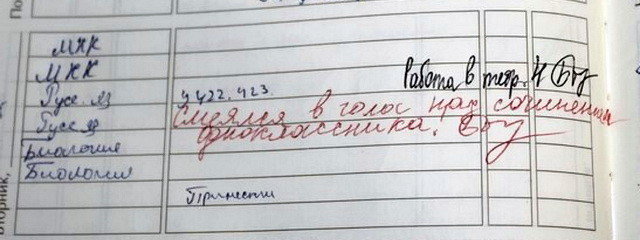 МХК
МХК
Работа в тетр. 4
Русс. яз
у 422, 423
Смеялся в голос над сочинением
одноклассника.
Русс. я
Биология
Биология
Принести
Вторник,